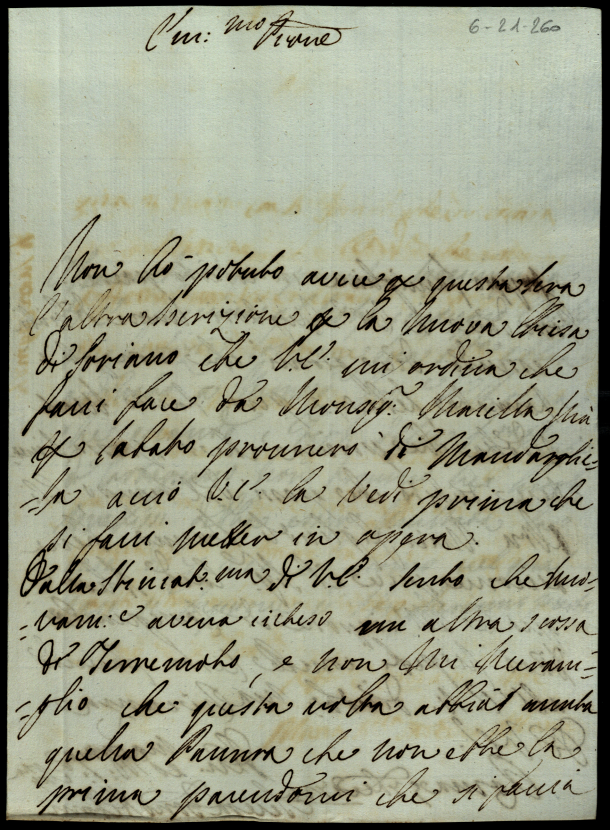 6-21-260
Em: mo Prone
Non hò potuto avere p questa sera
l'altra Iscrizione p la nuova Chiesa
di Soriano che V.E. mi ordina che
facci fare dà Monsig.r Maiella, mà
p sabato procurerò di Mandargli=
=la acciò V.E. la Vedi prima che
si facci metter in opera.
Dalla Stimat.ma di V.E. sento che nuo=
=vam.e aveva inteso un altra scossa
di Terremoto, e non mi meravi=
=glio che questa volta abbia avuta
quella Paura che non ebbe la
prima parendomi che si facci